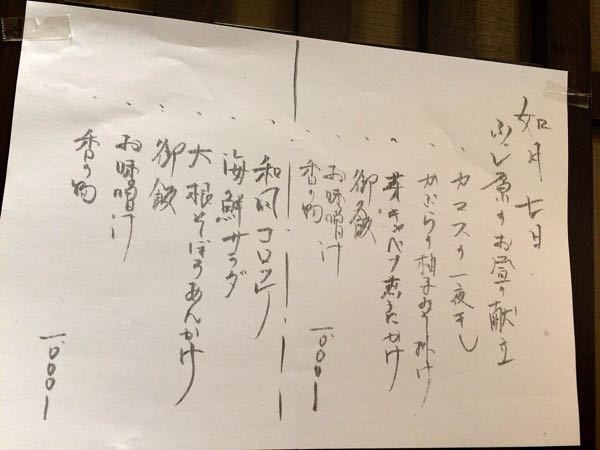 如月 七日
ふじ原のお昼の献立
、カマスの一夜干し
、かぶらの柚子みそ掛け
、芽キャベツ
、御飯
、お味噌汁
、香の物
一、〇〇〇
、和風コロッケ
、海鮮サラダ
、大根そぼろあんかけ
、御飯
、お味噌汁
、香の物
一、〇〇〇